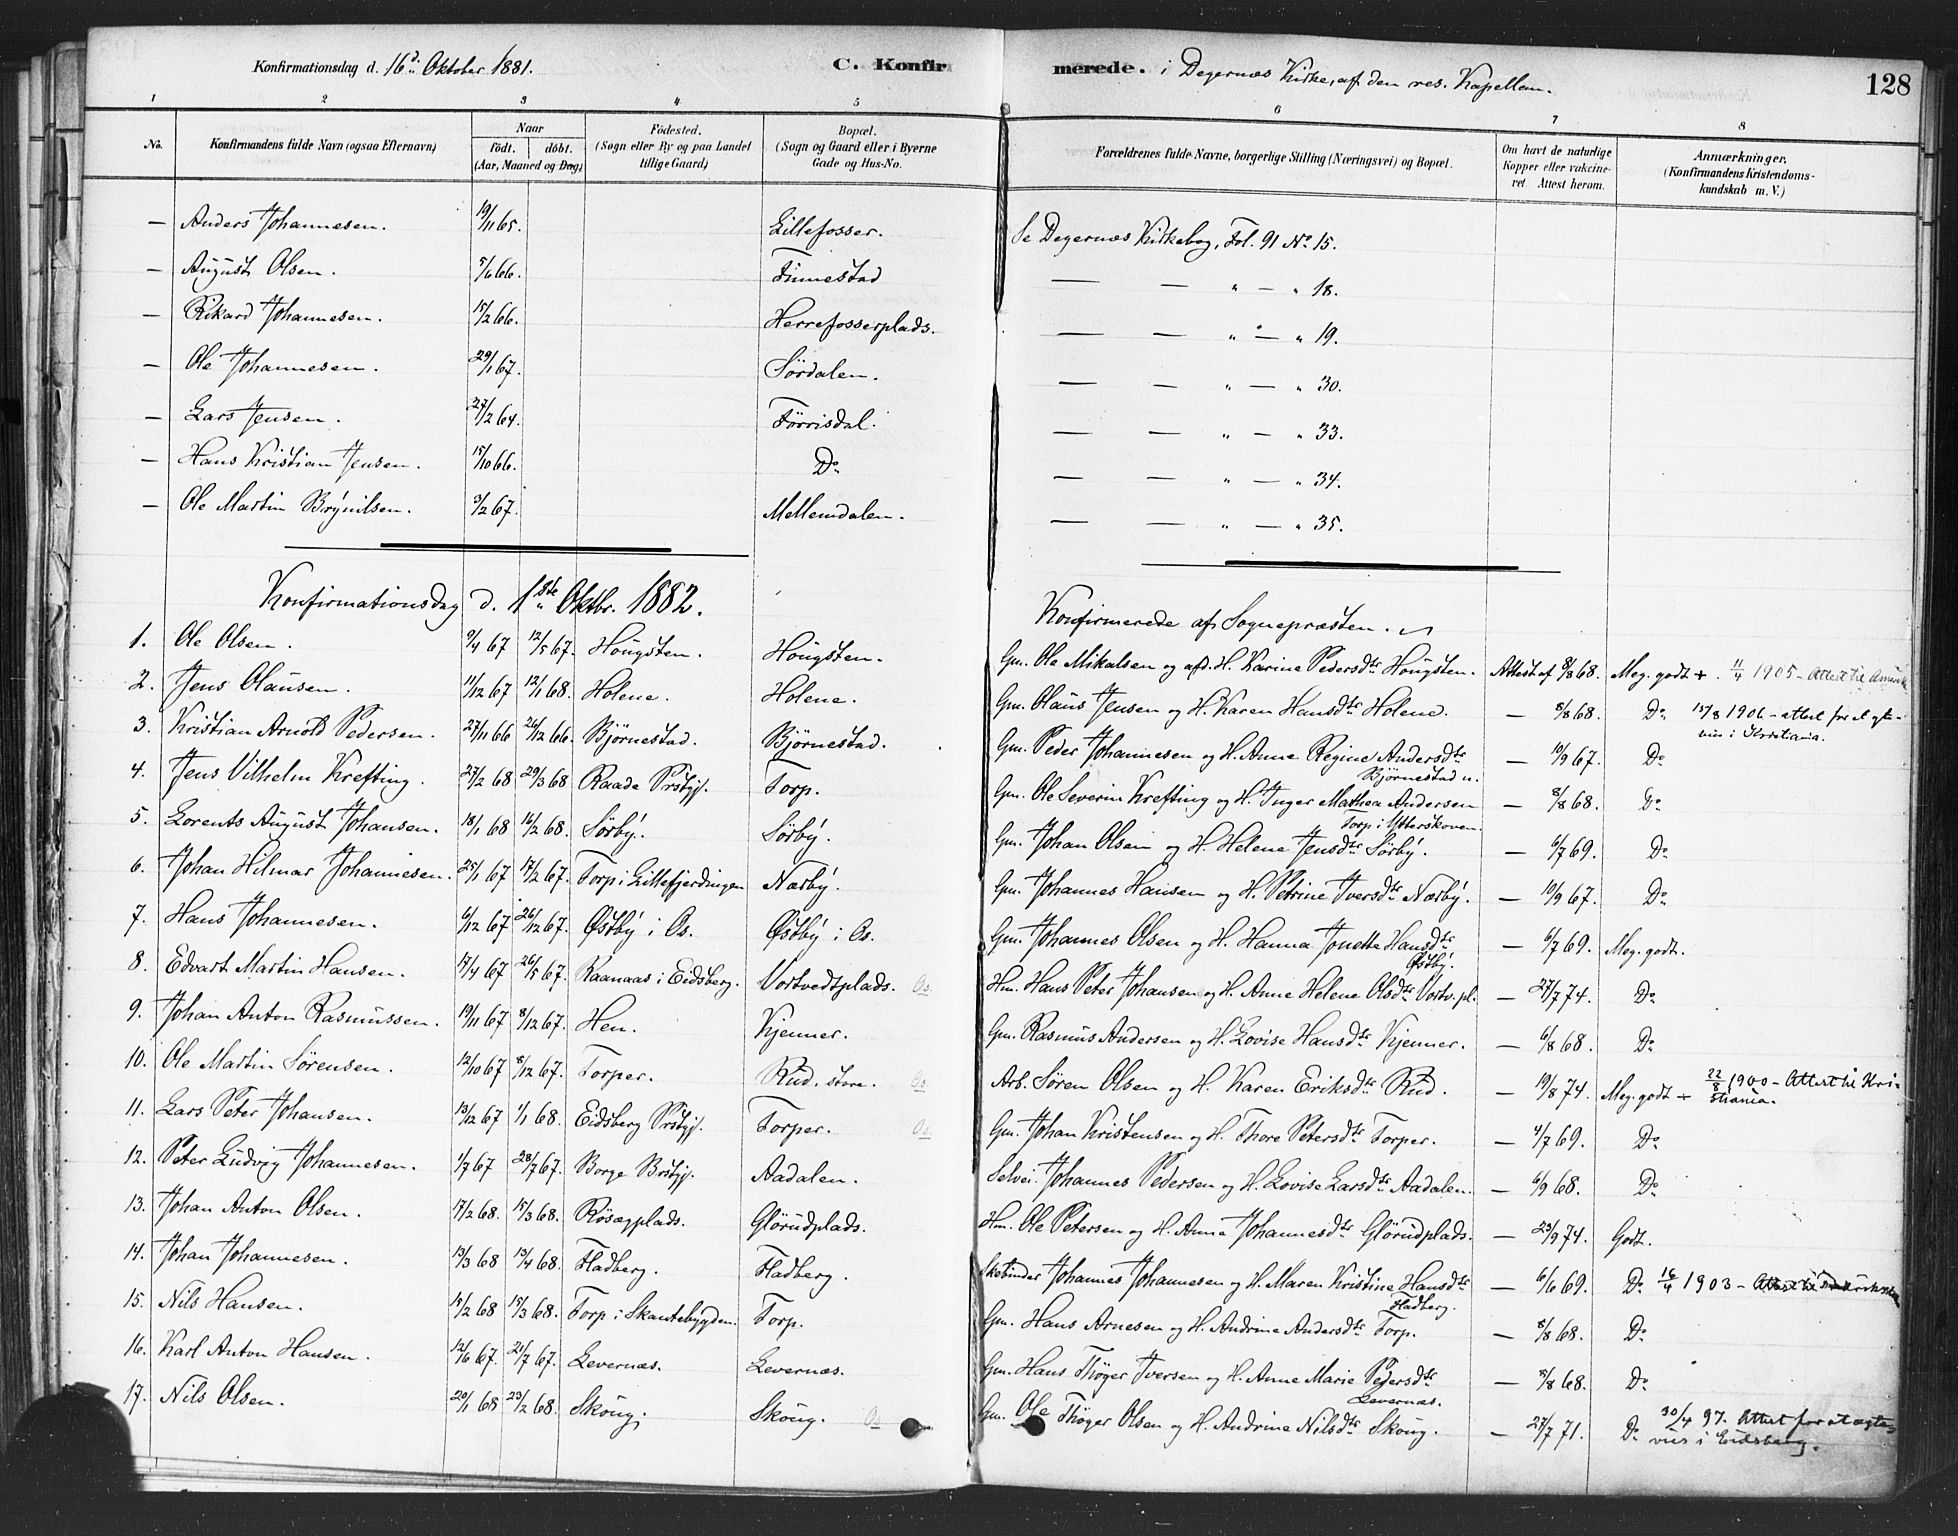 Konfirmationsdag d. 16d. Oktober 1881. C. Konfirmerede. i Degernes Kirke, af den res. Kapellan. 128
1 2 3 4 5 6 7 8
No. Konfirmandens fulde Navn (ogsaa Efternavn) Naar født. døbt. (Aar, Maaned og Dag) Fødested. (Sogn eller By og paa Landet tillige Gaard) Bopæl. (Sogn og Gaard eller i Byerne Gade og Hus-No. Forældrenes fulde Navne, borgerlige Stilling (Næringsvei) og Bopæl. Om havt de naturlige Kopper eller vakcineret. Attest herom. Anmærkninger. (Konfirmandens Kristendomskundskab m. V.)
— Anders Johannesen. 19/11 65. Lillefosser. Se Degernæs Kirkebog, Fol. 91 No 15.
— August Olsen. 5/6 66. Finnestad — — " — " 18.
— Rikard Johannesen. 15/2 66. Herrefosserplads. — — " — " 19.
— Ole Johannesen. 29/1 67. Sørdalen. — — " — " 30.
— Lars Jensen. 27/2 64. Førrisdal. — — " — " 33.
— Hans Kristian Jensen. 15/10 66. Do — — " — " 34.
— Ole Martin Brynilsen. 3/2 67. Mellemdalen. — — " — " 35.
Konfirmationsdag d. 1ste Oktbr. 1882. Konfirmerede af Sognepræsten.
1. Ole Olsen. 9/4 67 12/5 67. Hougsten. Hougsten. Gm. Ole Mikalsen og afd. H. Karine Pedersdtr Hougsten. Attest af 8/8 68. Meg. godt +. 11/4 1905 - Attest til Amerik
2. Jens Olausen. 11/12 67 12/1 68. Holene. Holene. Gm. Olaus Jensen og H. Karen Hansdtr Holene. — 8/8 68. Do 15/8 1906 - attest for at gte-
vies i Kristiania.
3. Kristian Arnold Pedersen. 27/11 66 26/12 66. Bjørnestad. Bjørnestad. Gm. Peder Johannesen og H. Anne Regine Andersdtr — 10/9 67. Do
Bjørnestad n.
4. Jens Vilhelm Krefting. 27/2 68 29/3 68 Raade Prstgj. Torp. Gm. Ole Severin Krefting og H. Inger Mathea Andersen — 8/8 68. Do
Torp i Ytterskoven.
5. Lorents August Johansen. 18/1 68 16/2 68. Sørby. Sørby. Gm. Johan Olsen og H. Helene Jensdtr Sørby. — 6/7 69. Do
6. Johan Hilmar Johannesen. 25/1 67 17/2 67. Torp i Lillefjerdingen Nærby. Gm. Johannes Hansen og H. Petrine Iversdtr Nærby. — 10/9 67. Do
7. Hans Johannesen. 6/12 67 26/12 67. Østby i Os. Østby i Os. Gm. Johannes Olsen og H. Hanna Jonette Hansdtr — 6/7 69. Meg. godt.
Østby.
8. Edvart Martin Hansen. 17/4 67 26/5 67. Raanaas i Eidsberg. Vortvedtplads. Os. Hm. Hans Peter Johansen og H. Anne Helene Olsdtr Vortv. pl. — 27/7 74. Do
9. Johan Anton Rasmussen. 19/11 67 8/12 67. Hen. Kjenner. Gm. Rasmus Andersen og H. Lovise Hansdtr Kjenner. — 6/8 68. Do
10. Ole Martin Sørensen. 12/10 67 8/12 67. Torper. Rud, store. Os. Arb. Søren Olsen og H. Karen Eriksdtr Rud. — 19/8 74. Meg. godt + 22/8 1900 - Attest til Kri-
stiania.
11. Lars Peter Johansen. 13/12 67 1/1 68. Eidsberg Prstgj. Torper. Os. Gm. Johan Kristensen og H. Thore Petersdtr Torper. — 4/7 69. Do
12. Peter Ludvig Johannesen. 1/7 67 28/7 67. Borge Prstgj. Aadalen. Selvei. Johannes Pedersen og H. Lovise Larsdtr Aadalen. — 6/9 68. Do
13. Johan Anton Olsen. 17/2 68. 15/3 68. Røsægplads. Glørudplads. Hm. Ole Petersen og H. Anne Johannesdtr Glørudplads. — 23/9 74. Godt.
14. Johan Johannesen. 13/3 68 13/4 68. Fladberg. Fladberg. Skebinder Johannes Johannesen og H. Maren Kristine Hansdtr — 6/6 69. Do 16/4 1903 - Attest til
Fladberg.
15. Nils Hansen. 15/2 68 15/3 68. Torp i Skantebygden. Torp. Gm. Hans Arnesen og H. Andrine Andersdtr Torp. — 8/8 68. Do
16. Karl Anton Hansen. 12/6 67. 21/7 67. Levernæs. Levernæs. Gm. Hans Thøger Iversen og H. Anne Marie Pedersdtr — 8/8 68. Do
Levernæs.
17. Nils Olsen. 20/1 68 23/2 68. Skoug. Skoug. Os Gm. Ole Thøger Olsen og H. Andrine Nilsdtr Skoug. — 27/7 71. Do 30/4 97. Attest for at ægte
vies i Eidsberg.